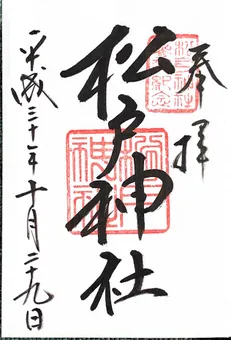 奉拝
松戸神社
平成三十年十月二十九日
松戸神社